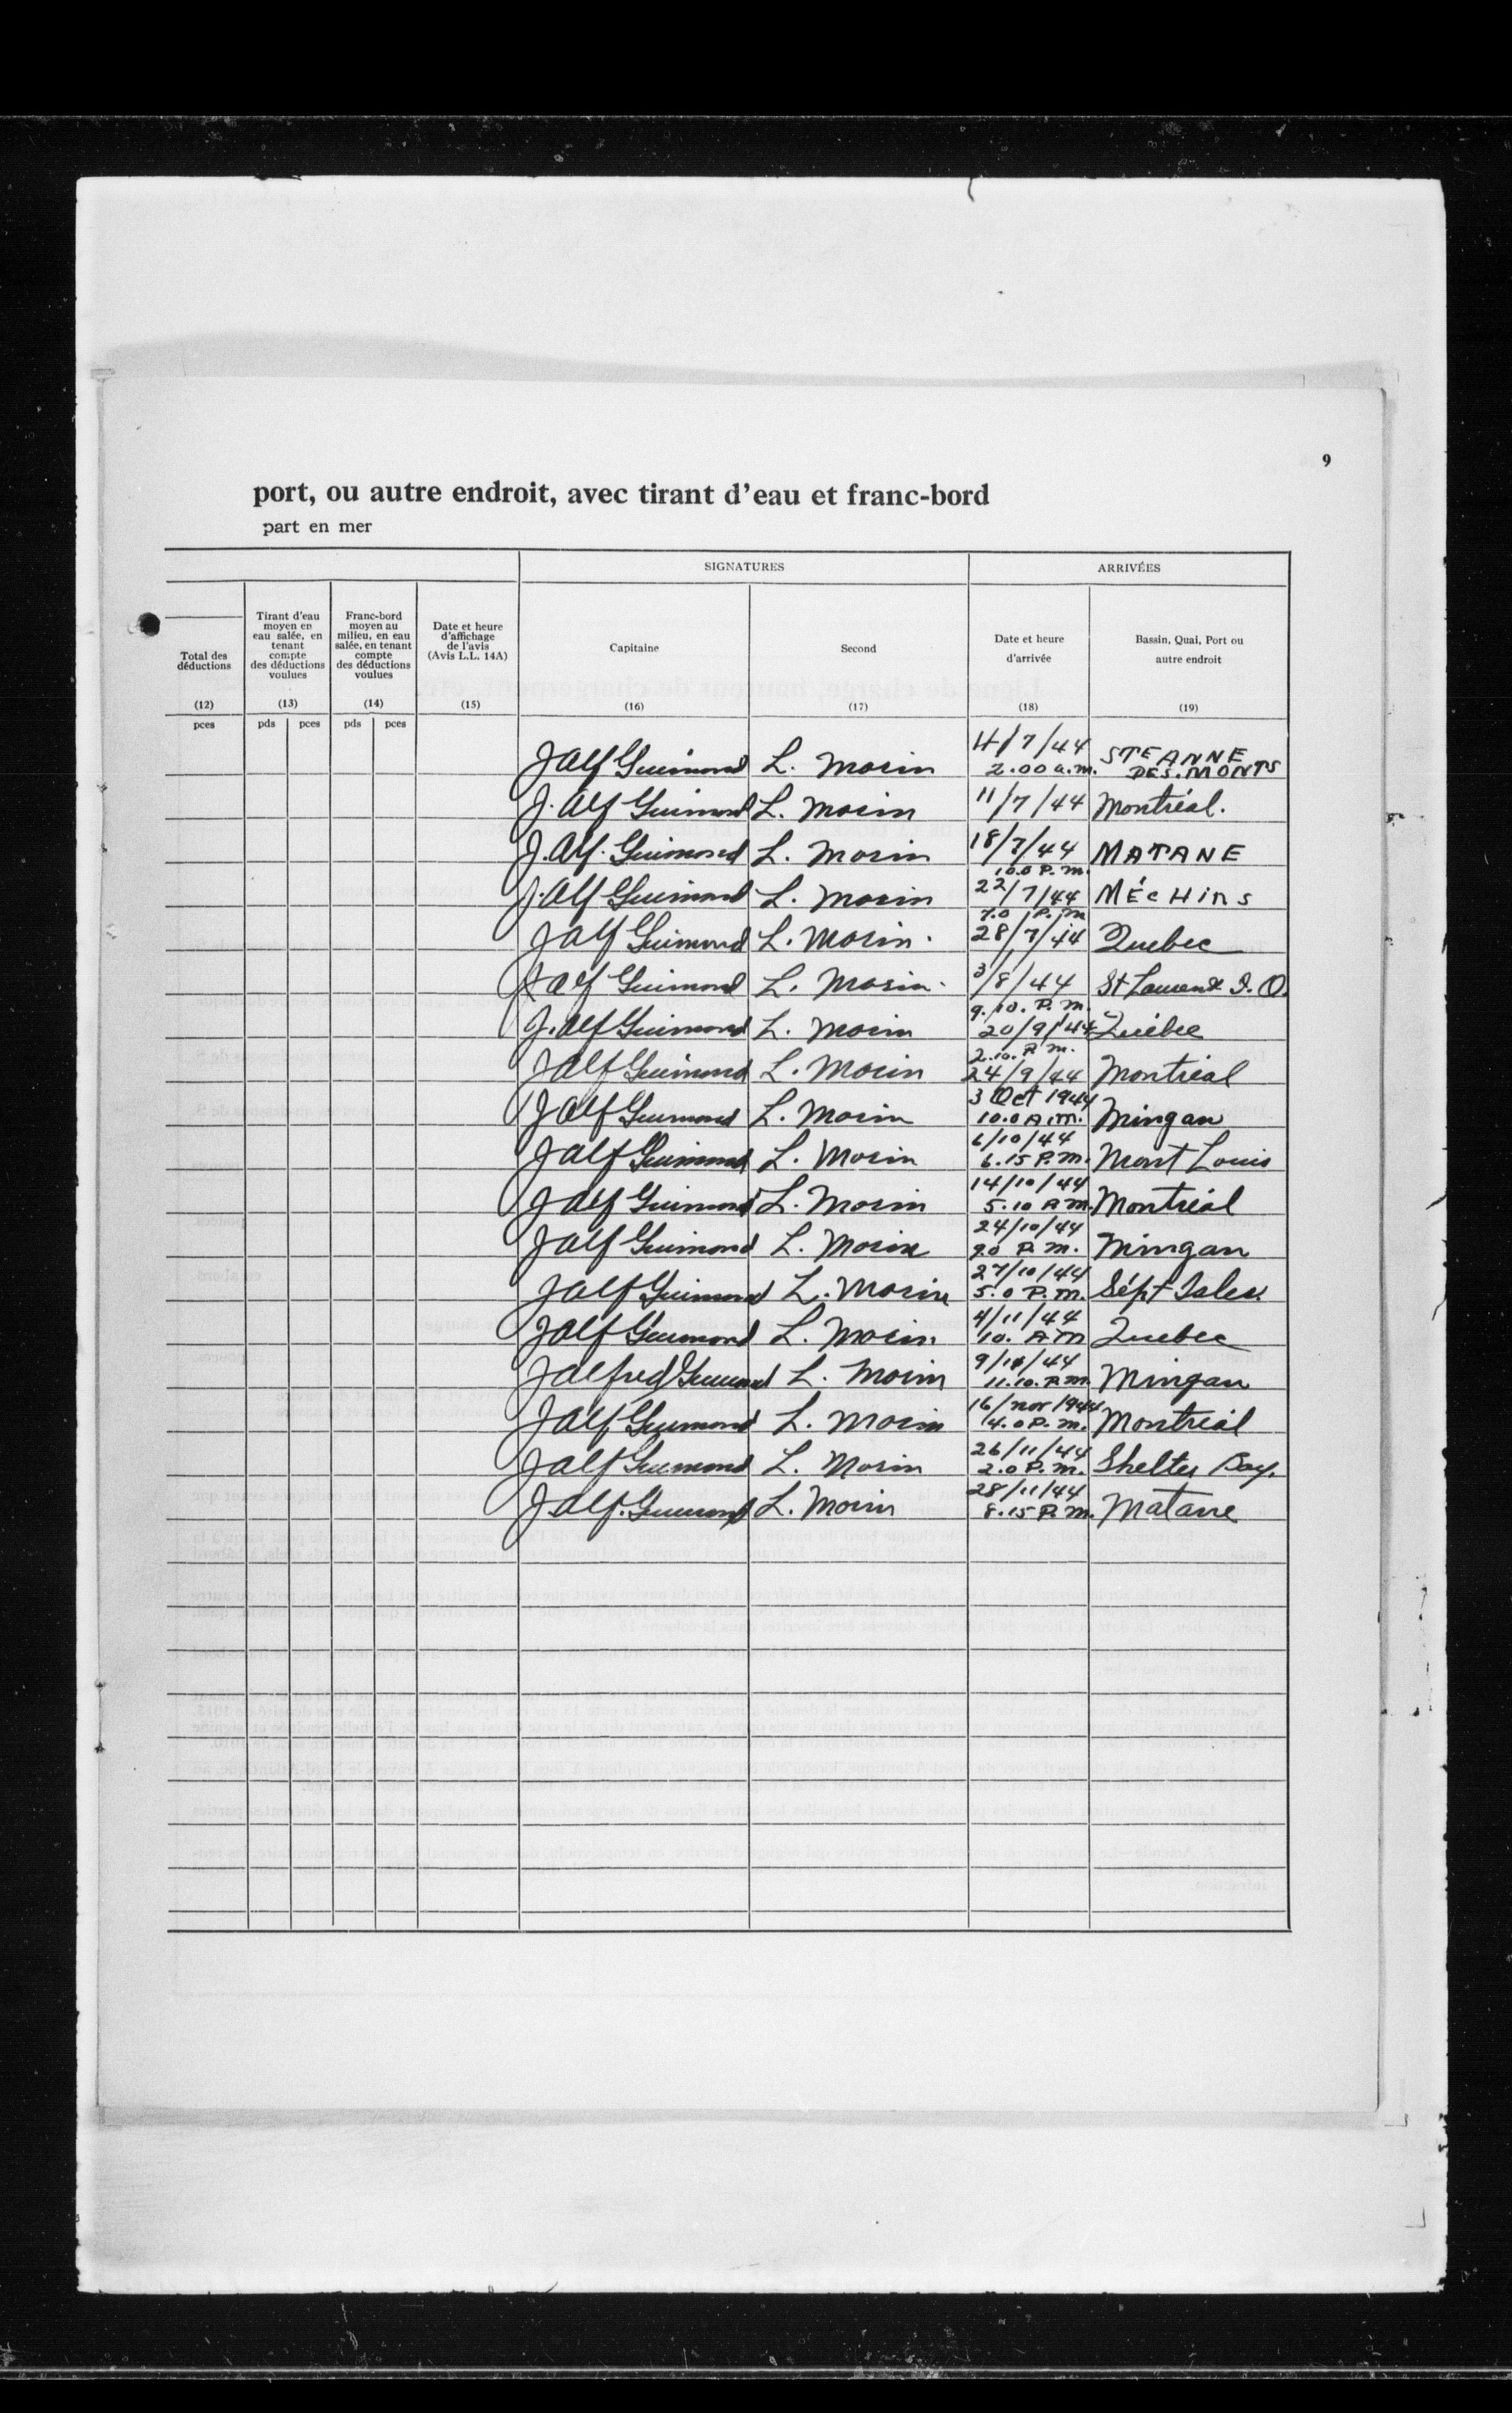 9
port, ou autre endroit, avec tirant d'eau et franc-bord
part en mer
SIGNATURES ARRIVÉES
Total des déductions
(12)
pces
Tirant d'eau moyen en eau salée, en tenant compte des déductions voulues
(13)
pds pces
Franc-bord moyen au milieu, en eau salée, en tenant compte des déductions voulues
(14)
pds pces
Date et heure d'affichage de l'avis (Avis L.L. 14A)
(15)
Capitaine
(16)
Second
(17)
Date et heure d'arrivée
(18)
Bassin, Quai, Port ou autre endroit
(19)
J Alf Guimond L. Morin /7/44 2.00 a.m. STE ANNE DES. MONTS
J. Alf Guimond L. Morin 11/7/44 Montréal.
J. Alf. Guimond L. Morin 18/7/44 MATANE
J. Alf Guimond L. Morin 10.0 P.m. 22/7/44 MÉCHINS
J Alf Guimond L. Morin. 7.0 P.m 28/7/44 Quebec
J Alf Guimond L. Morin. 3/8/44 St Laurent I. O.
J. Alf Guimond L. Morin 9.10. P.m. 20/9/44 Québec
J Alf Guimond L. Morin 2.10. P m. 24/9/44 Montreal
J Alf Guimond L. Morin 3 Oct 1944 10.0 A.m. Mingan
J Alf Guimond L. Morin 6/10/44 6.15 P.m. Mont Louis
J Alf Guimond L. Morin 14/10/44 5.10 A m. Montréal
J Alf Guimond L. Morin 24/10/44 9.0 P.m. Mingan
J Alf Guimond L. Morin 27/10/44 5.0 P.m. Sépt Isles.
J Alf Guimond L. Morin 4/11/44 10. AM Quebec
J Alfred Guimond L. Morin 9/11/44 11.10. P.m. Mingan
J Alf Guimond L. Morin 16/nov 1944 4.0 P.m. Montréal
J Alf Guimond L. Morin 26/11/44 2.0 P.m. Shelter Bay.
J. Alf. Guimond L. Morin 28/11/44 8.15 P.m. Matane